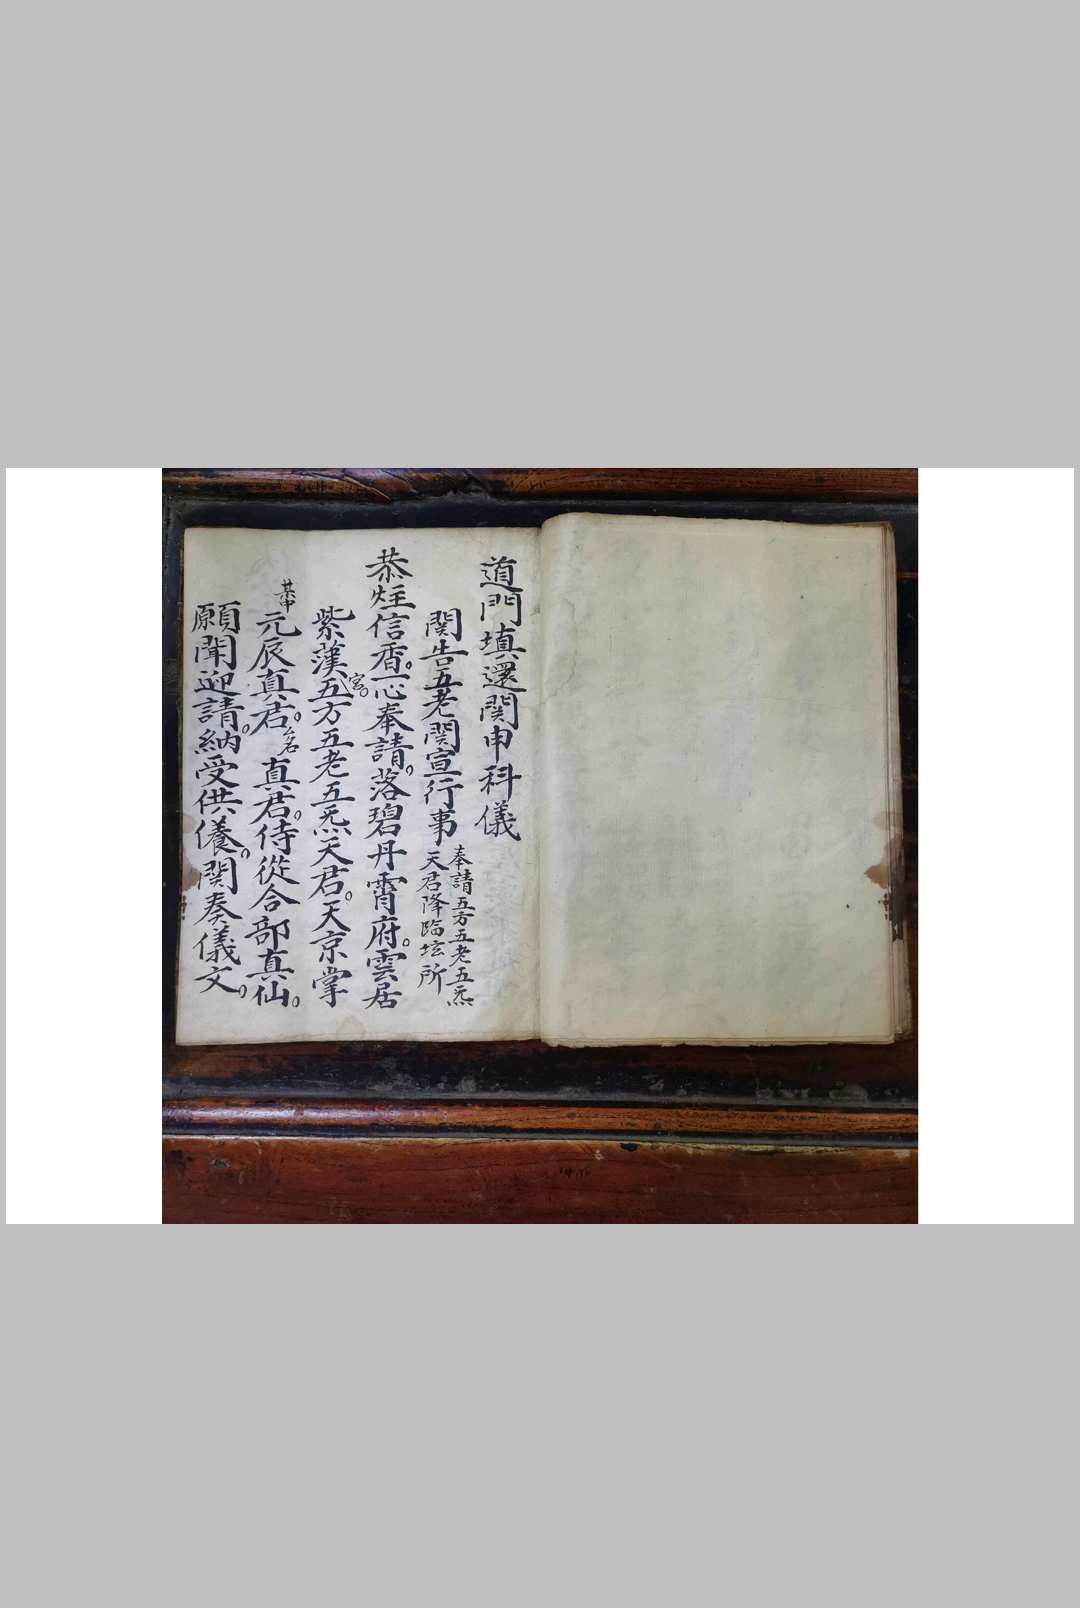 道門填還関申科儀
関告五老関宣行事 奉請五方五老五炁
天君降臨坛所
恭炷信香。一心奉請。落碧丹霄府。雲居
紫漢宮。五方五老五炁天君。天京掌
其中元辰真君。厶名真君。侍從合部真仙。
願聞迎請。納受供養。関奏儀文。